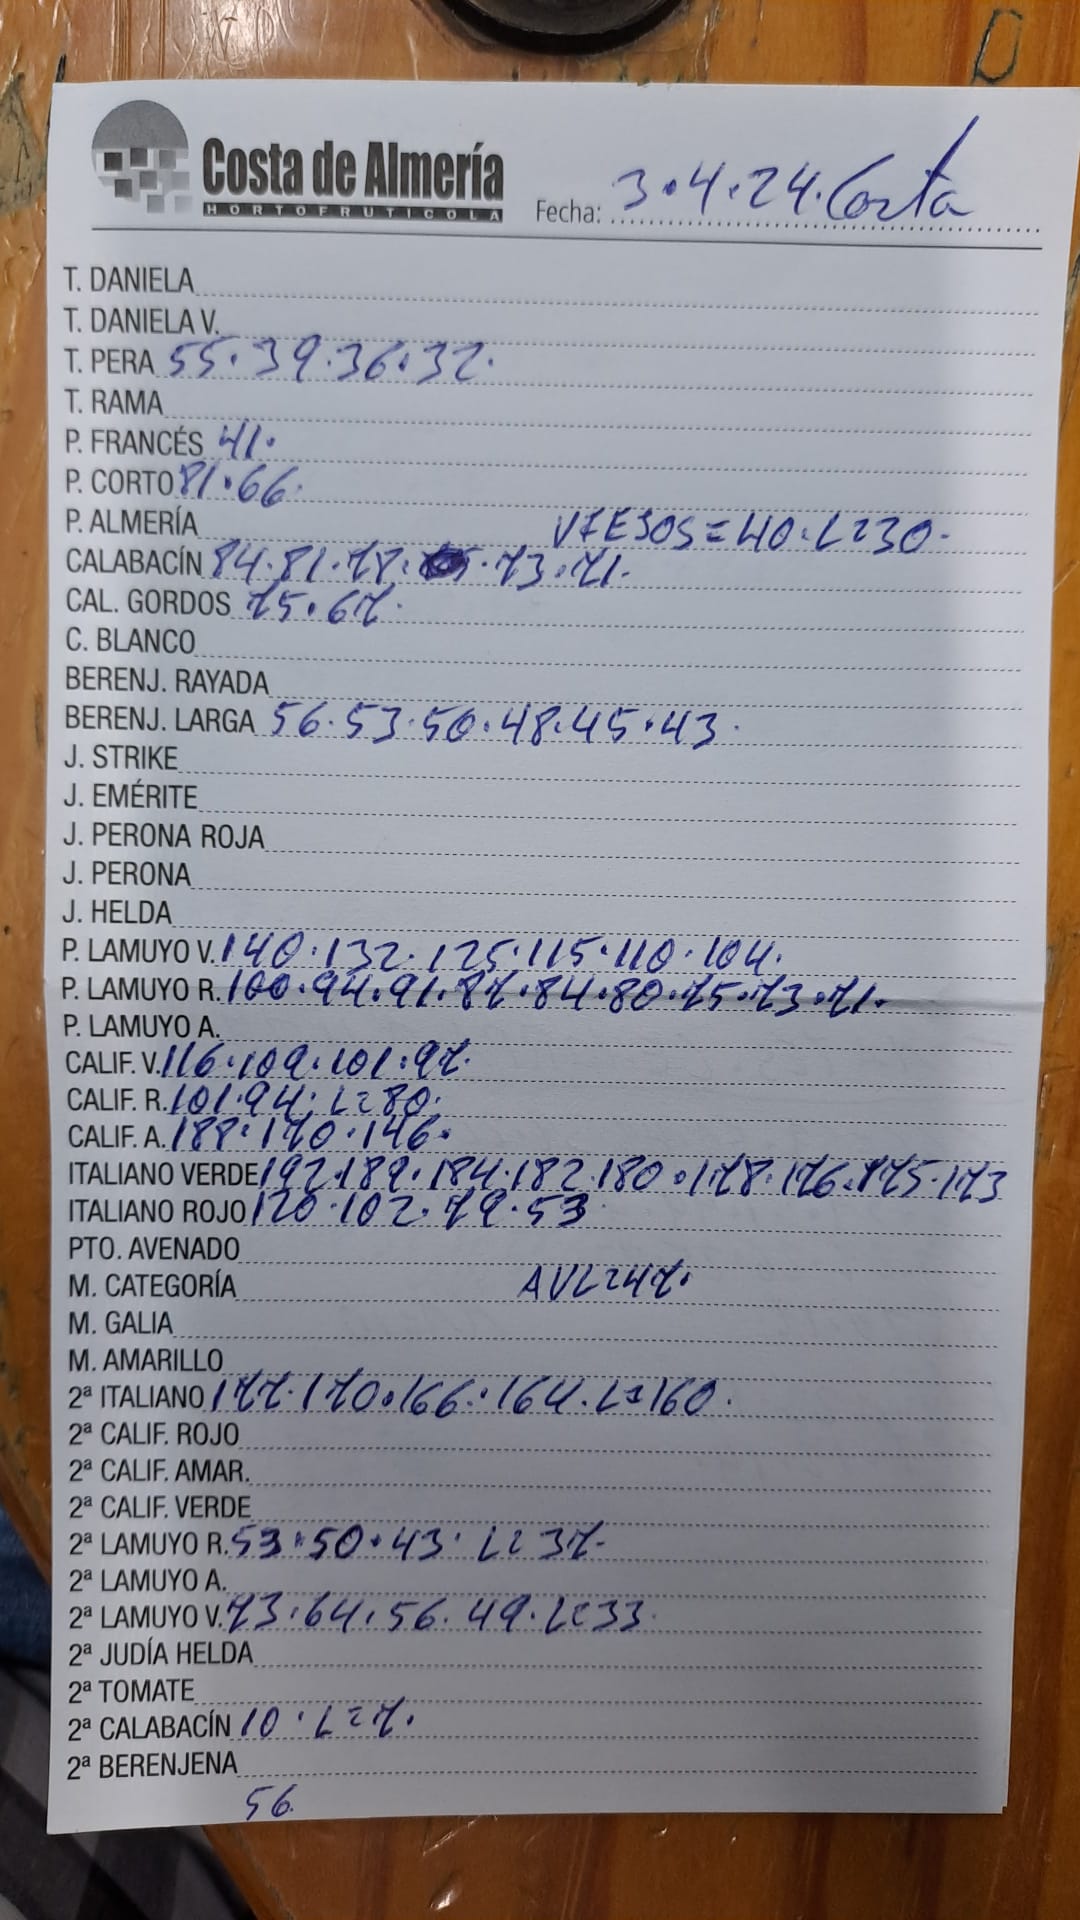 Costa de Almería
HORTOFRUTICOLA
Fecha: 3.4.24. Costa
T. DANIELA
T. DANIELA V.
T. PERA 55.39.36.32.
T. RAMA
P. FRANCÉS 41.
P. CORTO 81.66.
P. ALMERÍA VIEJOS=40.L=30.
CALABACÍN 84.81.78. .73.71.
CAL. GORDOS 75.67.
C. BLANCO
BERENJ. RAYADA
BERENJ. LARGA 56.53.50.48.45.43.
J. STRIKE
J. EMÉRITE
J. PERONA ROJA
J. PERONA
J. HELDA
P. LAMUYO V. 140.132.125.115.110.104.
P. LAMUYO R. 100.94.91.87.84.80.75.73.71.
P. LAMUYO A.
CALIF. V. 116.109.101.97.
CALIF. R. 101.94.L=80.
CALIF. A. 188.170.146.
ITALIANO VERDE 192.189.184.182.180.178.176.175.173
ITALIANO ROJO 120.102.79.53
PTO. AVENADO
M. CATEGORÍA AVL=47.
M. GALIA
M. AMARILLO
2ª ITALIANO 177.170.166.164.L=160.
2ª CALIF. ROJO
2ª CALIF. AMAR.
2ª CALIF. VERDE
2ª LAMUYO R. 53.50.43.L=37.
2ª LAMUYO A.
2ª LAMUYO V. 73.64.56.49.L=33.
2ª JUDÍA HELDA
2ª TOMATE
2ª CALABACÍN 10.L=7.
2ª BERENJENA
56.